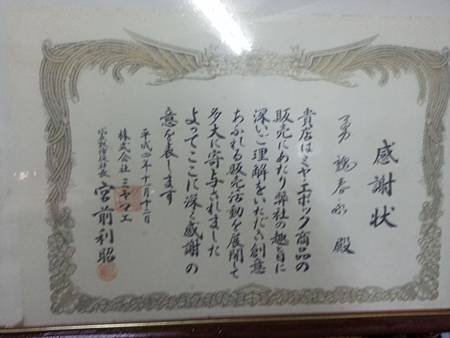 感謝状
勇魂春永 殿
貴店はミヤ・エポック商品の
販売にあたり弊社の趣旨に
深いご理解をいただき創意
あふれる販売活動を展開して
多大に寄与されました
よってここに深く感謝の
意を表します
平成四年十二月十二日
株式会社ミヤマエ
代表取締役社長 宮前利昭